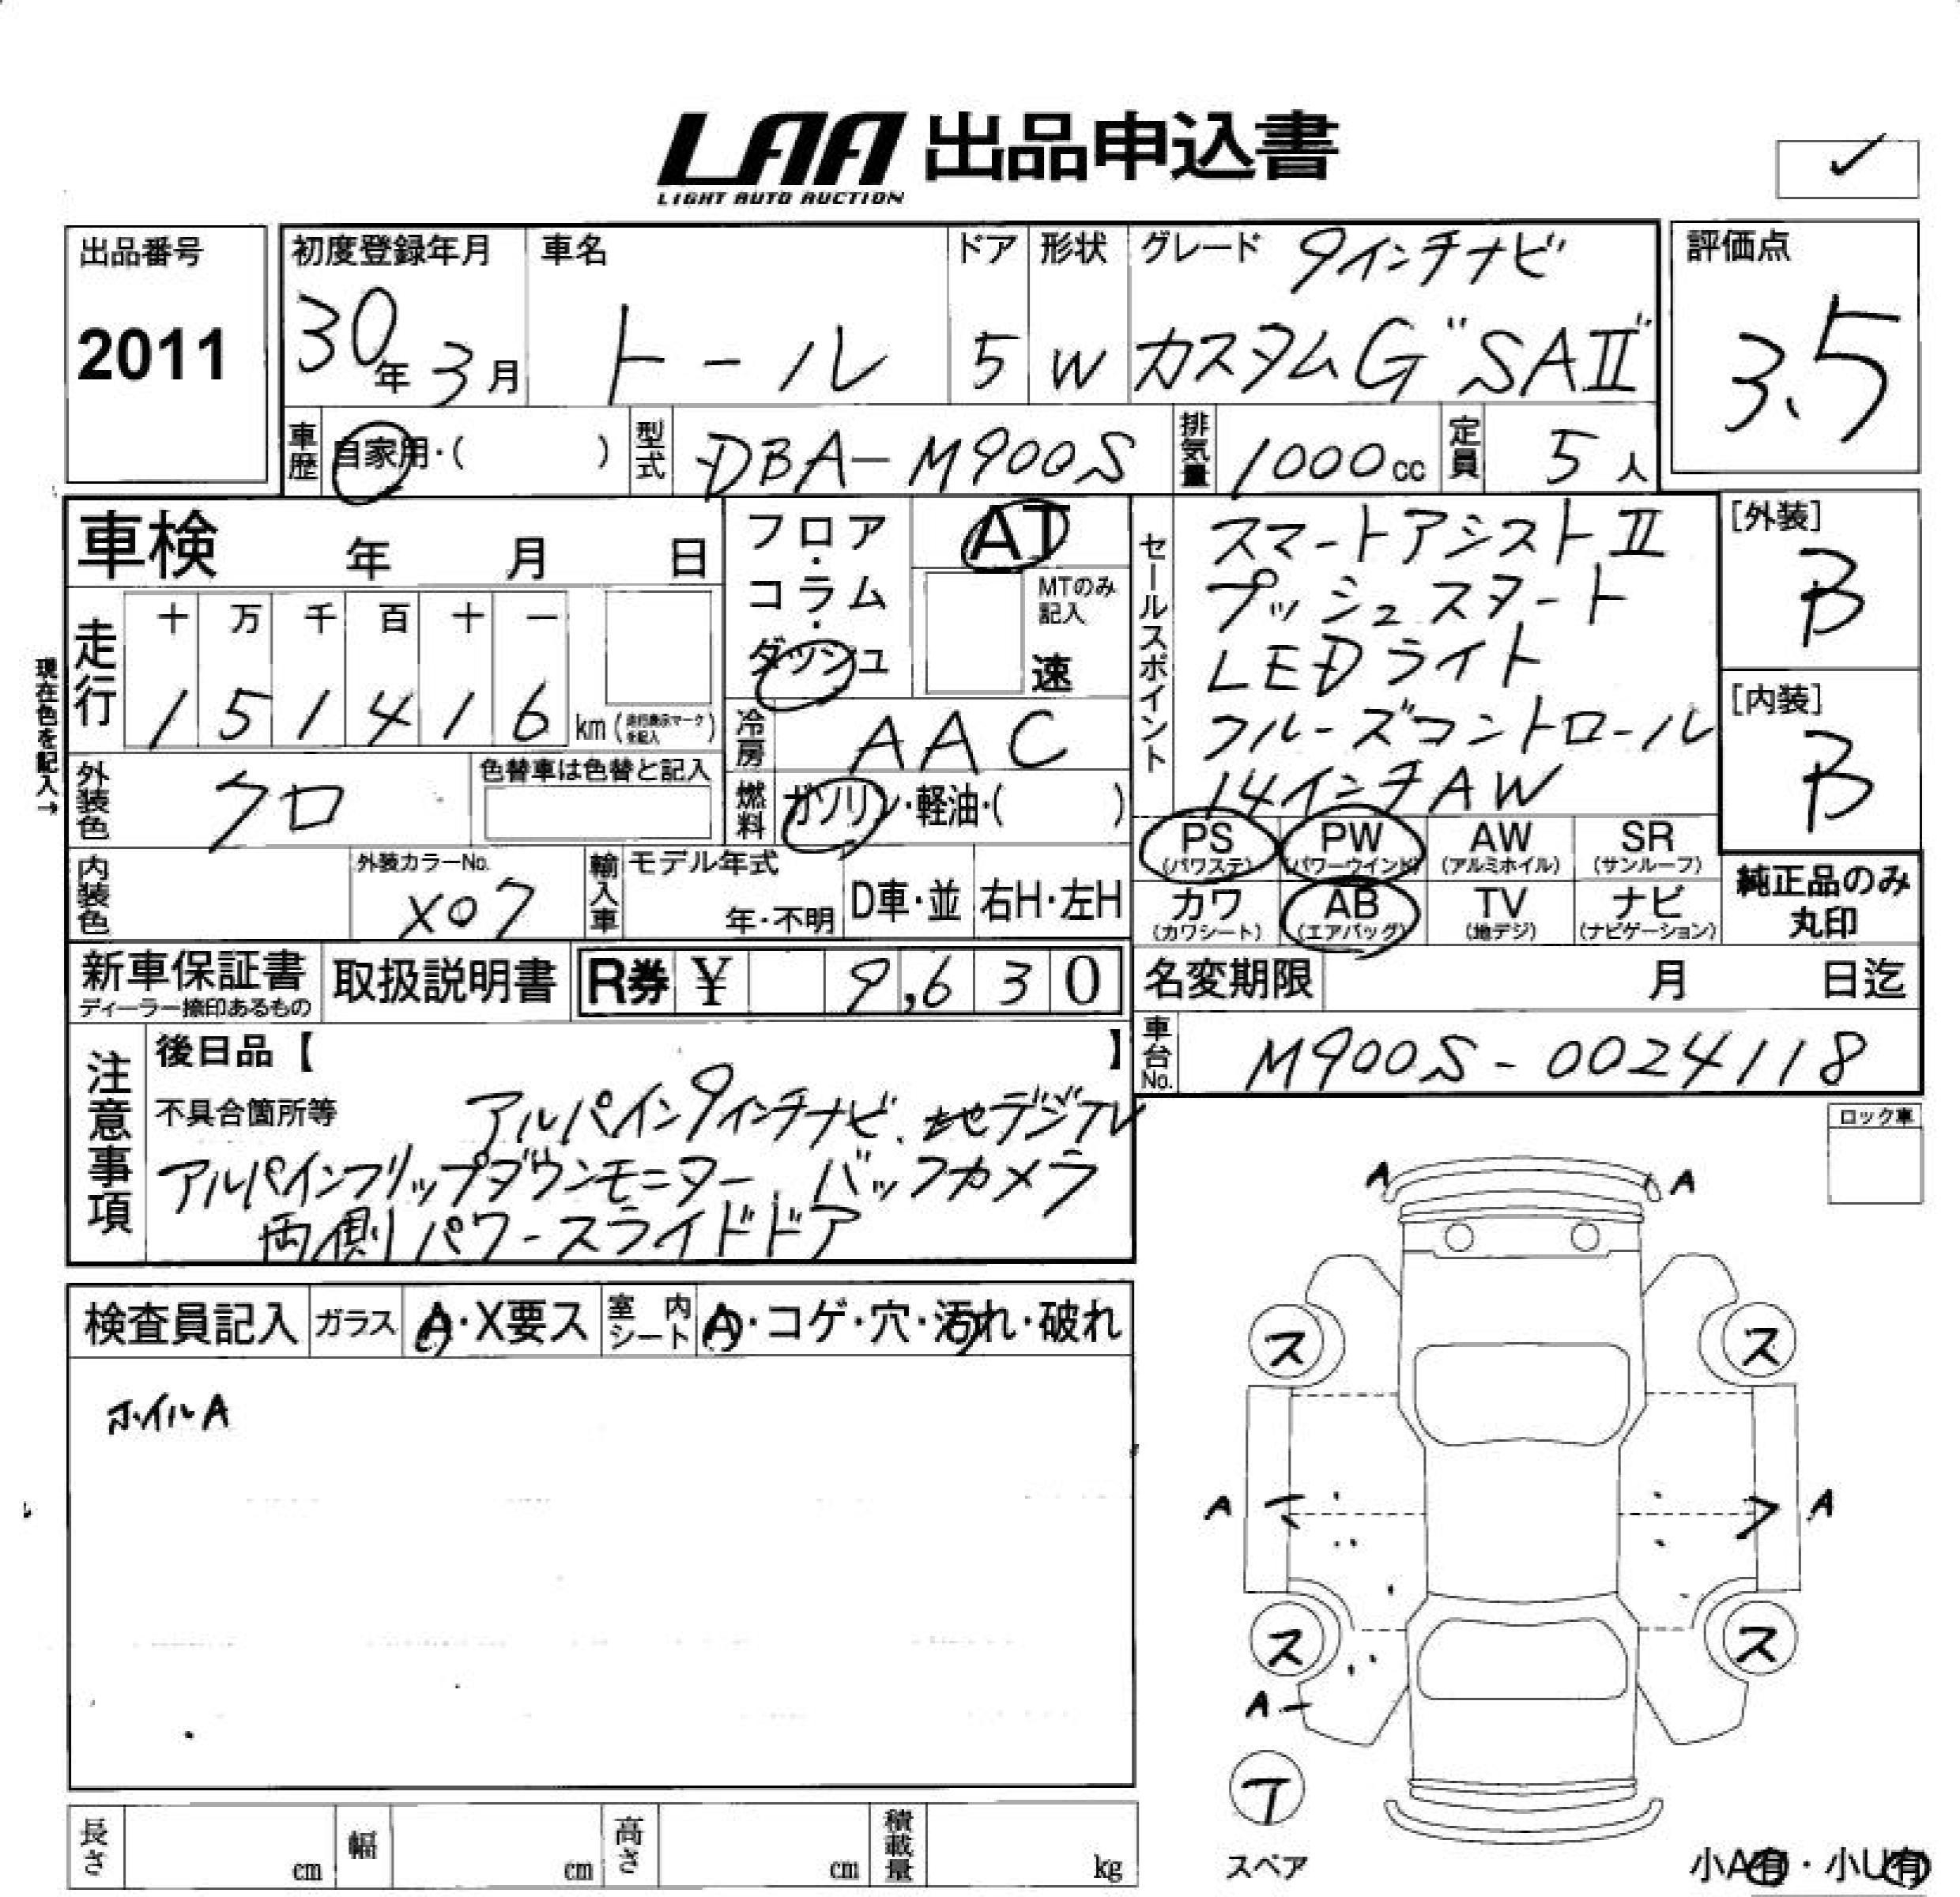 LAA 出品申込書
LIGHT AUTO AUCTION
✓
出品番号
2011
初度登録年月
30年 3月
車名
トール
ドア
5
形状
W
グレード
9インチナビ
カスタムG "SAⅡ"
評価点
3.5
車歴
自家用・( )
型式
DBA-M900S
排気量
1000cc
定員
5人
車検 年 月 日
現在色を記入→
走行
十 万 千 百 十 一
1 5 1 4 1 6 km (走行表示マークを記入)
フロア・コラム・ダッシュ
AT
MTのみ記入
速
セールスポイント
スマートアシストⅡ
プッシュスタート
LEDライト
クルーズコントロール
14インチAW
[外装]
B
[内装]
B
外装色
クロ
色替車は色替と記入
冷房
AAC
燃料
ガソリン・軽油・( )
内装色
外装カラーNo.
X07
輸入車
モデル年式
年・不明
D車・並
右H・左H
PS (パワステ)
PW (パワーウインド)
AW (アルミホイル)
SR (サンルーフ)
カワ (カワシート)
AB (エアバッグ)
TV (地デジ)
ナビ (ナビゲーション)
純正品のみ丸印
新車保証書
ディーラー捺印あるもの
取扱説明書
R券 ¥ 9,630
名変期限 月 日迄
車台No.
M900S-0024118
注意事項
後日品【 】
不具合箇所等 アルパイン9インチナビ、地デジTV
アルパインフリップダウンモニター、バックカメラ
両側パワースライドドア
ロック車
検査員記入
ガラス
A・X要ス
室内シート
A・コゲ・穴・汚れ・破れ
ホイルA
A A
ス ス
A A
ス ス
A
T
スペア
小A有・小U有
長さ cm
幅 cm
高さ cm
積載量 kg